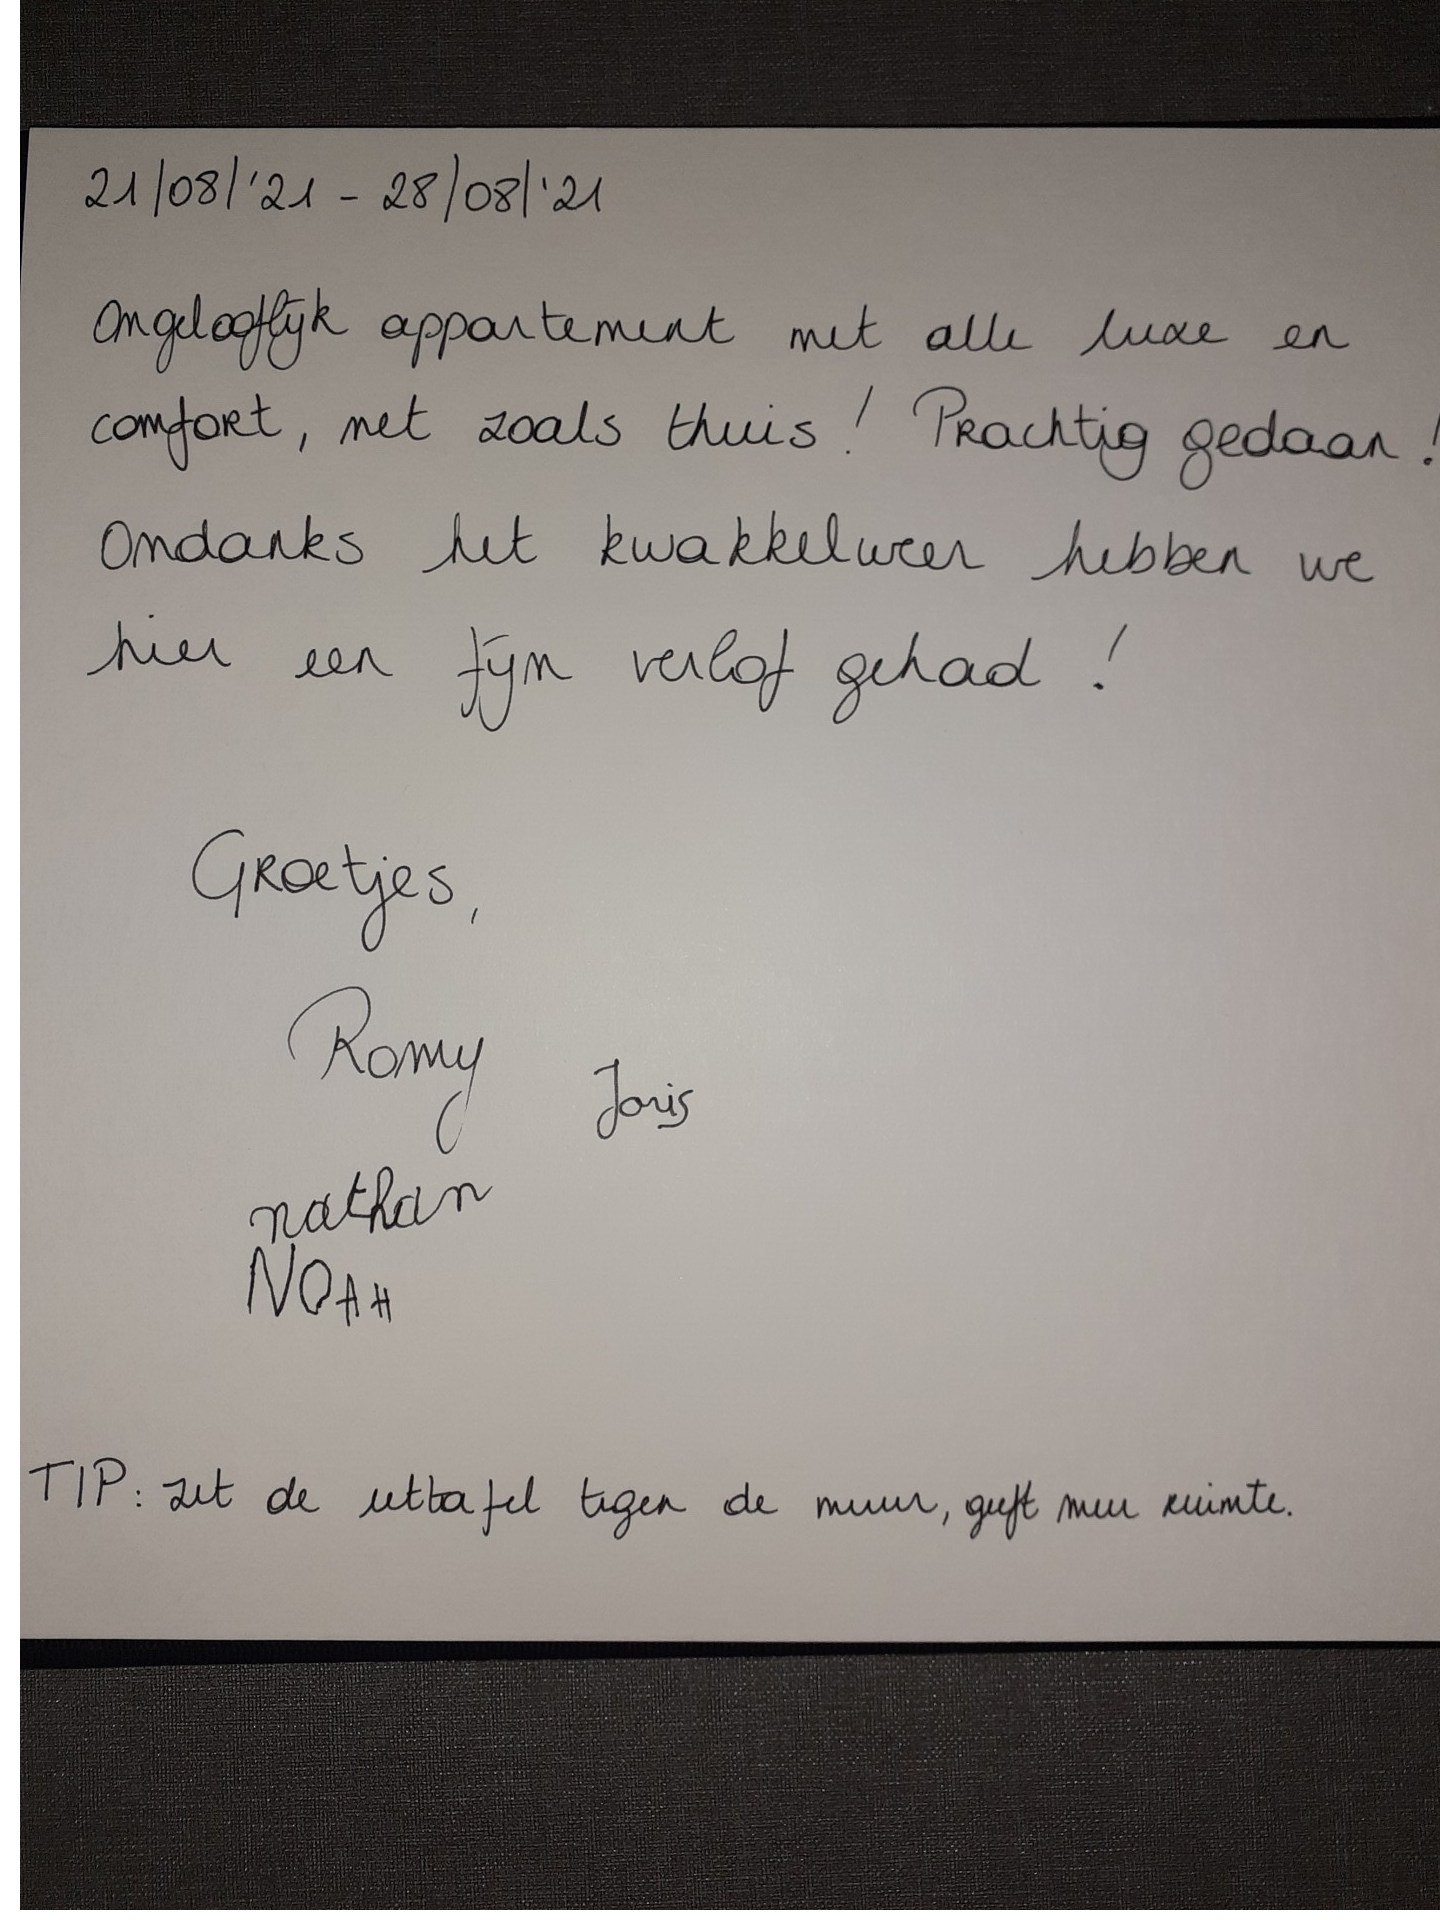 21/08/'21 - 28/08/'21
Ongelooflijk appartement met alle luxe en
comfort, net zoals thuis! Prachtig gedaan!
Ondanks het kwakkelweer hebben we
hier een fijn verlof gehad!
Groetjes,
Romy
Joris
nathan
NOAH
TIP: zet de eettafel tegen de muur, geeft meer ruimte.